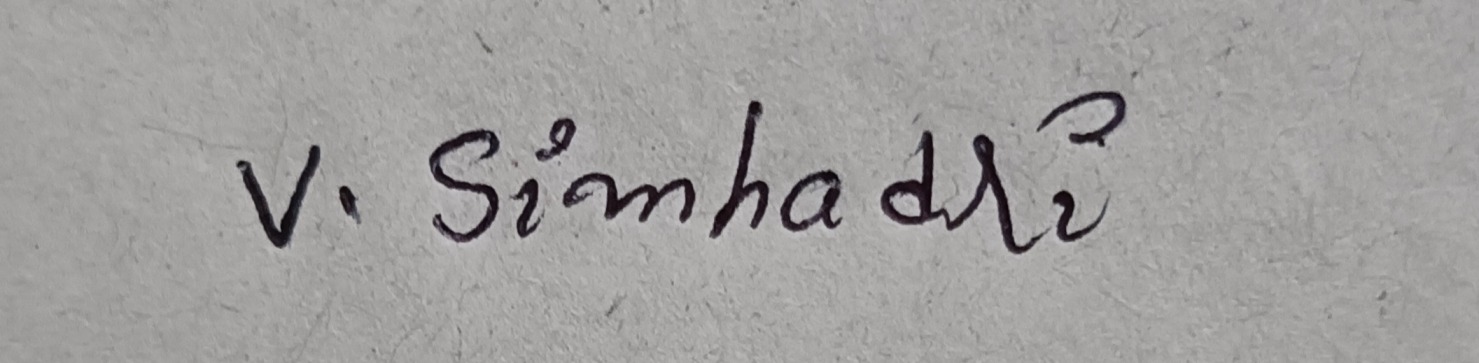 V. Simhadri